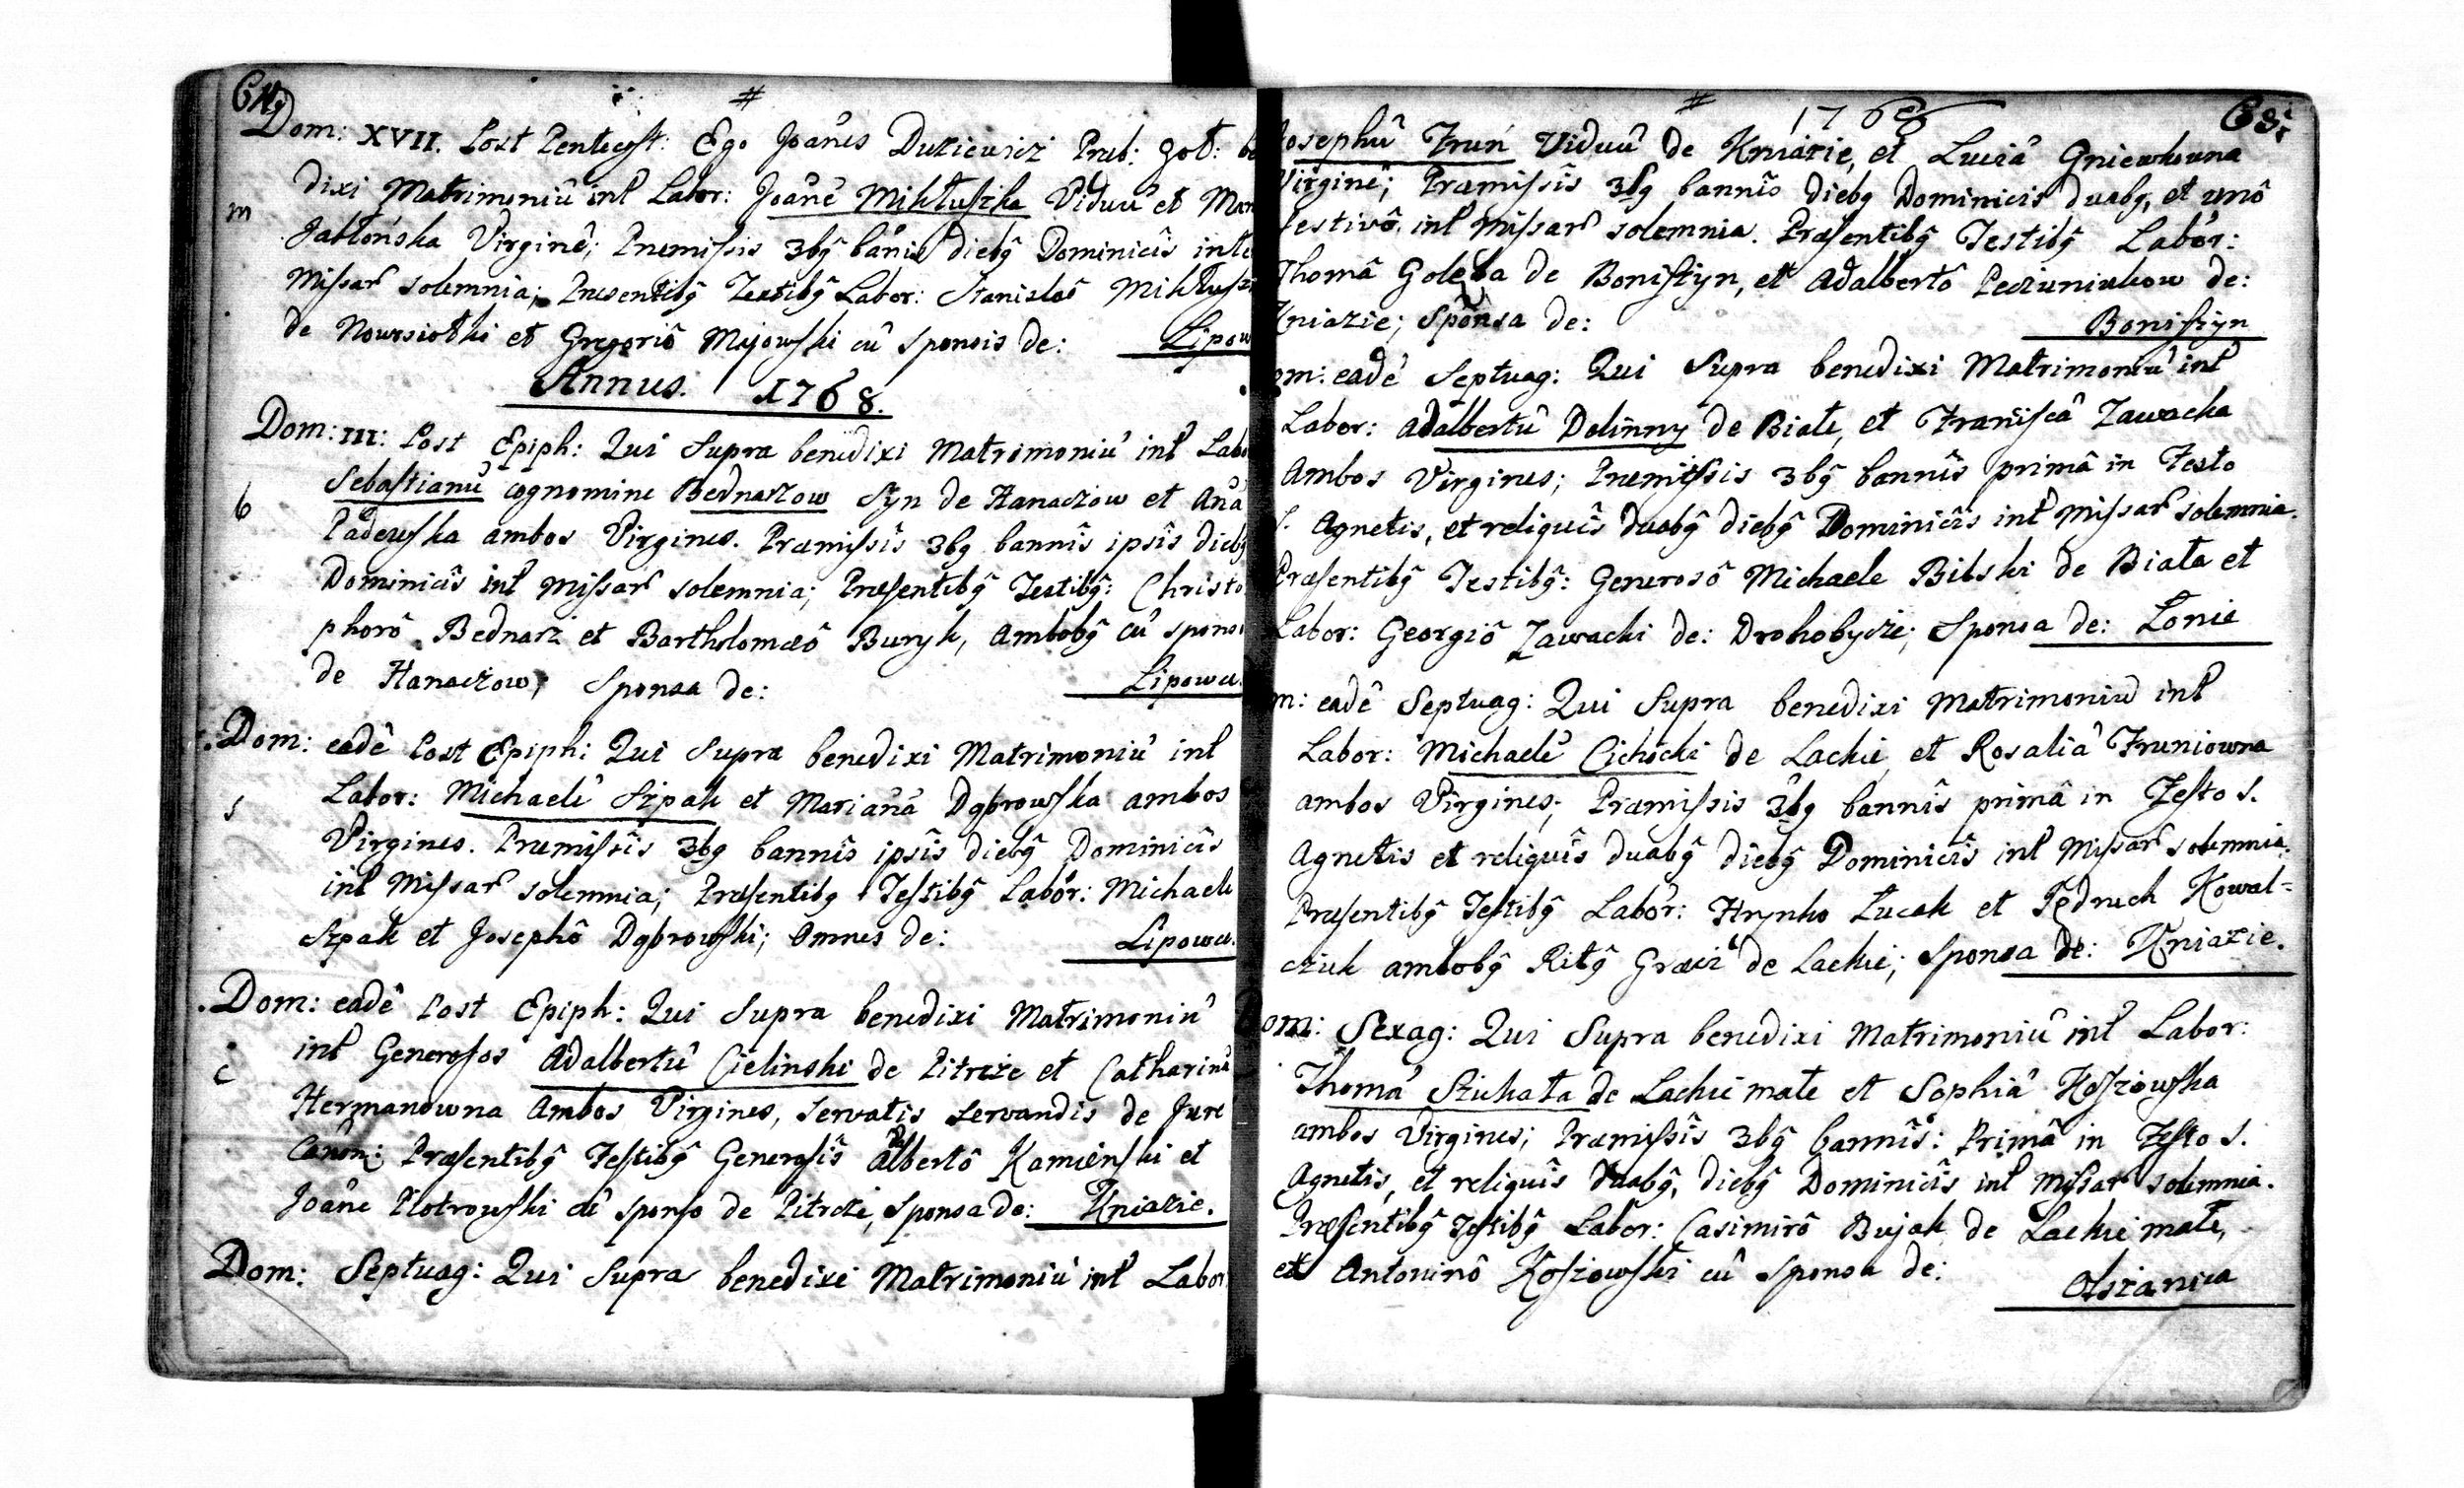 64
Dom: XVII. Post Pentecost: Ego Joañes Duziewicz Præb: Goł: be
dixi Matrimoniû inł Labor: Joañê Mikłuszka Viduû et Mar
m
Jabłońska Virginê; Præmissis 3bg bañis diebg Dominicîs inte
Missar solemnia; Præsentibg Testibg Labor: Stanislaô Mikłusz
de Nowosiołki et Gregoriô Majowski cû Sponsis de: Lipow
Annus. 1768.
Dom: III: Post Epiph: Qui Supra benedixi Matrimoniû inł Labo
Sebastianû cognomine Bednarzow Syn de Hanaczow et Aña
b
Padewska ambos Virgines. Præmissîs 3bg bannîs ipsîs diebg
Dominicîs inł Missar solemnia; Præsentibg Testibg: Christo
phorô Bednarz et Bartholomæô Buryk, ambobg cû spons
de Hanaczow; Sponsa de: Lipowa.
Dom: eadê Post Epiph: Qui Supra benedixi Matrimoniû inł
Labor: Michaelê Szpak et Marianâ Dąbrowska ambos
s
Virgines. Præmissîs 3bg bannîs ipsîs diebg Dominicîs
inł Missar solemnia; Præsentibg Testibg Labor: Michaele
Szpak et Josephô Dąbrowski; Omnes de: Lipowa.
Dom: eadê Post Epiph: Qui Supra benedixi Matrimoniû
inł Generosos Adalbertû Cielinski de Pitrcze et Catharinâ
c
Hermanowna Ambos Virgines, servatis servandis de Jure
Canôn: Præsentibg Testibg Generosîs Adalbertô Kamienski et
Joañe Piotrowski cû sponso de Pitrcze, Sponsa de: Kniazie.
Dom: Septuag: Qui Supra benedixi Matrimoniû inł Labor
1768
65
Josephû Frun Viduû de Kniazie, et Luciâ Gniewkowna
Virginê; Præmissîs 3bg bannîs diebg Dominicîs duabg, et unô
Festivô, inł Missar solemnia. Præsentibg Testibg Labor:
Thomâ Golęba de Boniszyn, et Adalbertô Pecziuniukow de:
Kniazie; Sponsa de: Boniszyn
om: eadê Septuag: Qui Supra benedixi Matrimoniû inł
Labor: Adalbertû Dolinny de Białe, et Franiscâ Zawacka
Ambos Virgines; Præmissîs 3bg bannîs primâ in Festo
S. Agnetis, et reliquîs duabg diebg Dominicîs inł Missar solemnia.
Præsentibg Testibg: Generosô Michaele Bilski de Biała et
Labor: Georgiô Zawacki de: Drohobycze; Sponsa de: Łonie
m: eadê Septuag: Qui Supra benedixi Matrimoniû inł
Labor: Michaelê Cichicki de Lackie, et Rosaliâ Fruniowna
ambos Virgines; Præmissis 3bg bannîs primâ in Festo S.
Agnetis et reliquîs duabg diebg Dominicîs inł Missar solemnia.
Præsentibg Testibg Labor: Hrynko Łucak et Fedruch Kowal=
cziuk ambobg Ritg Græci de Lackie; Sponsa de: Kniazie.
om: Sexag: Qui Supra benedixi Matrimoniû inł Labor:
Thomâ Sztukała de Lackie małe et Sophiâ Koszowska
ambos Virgines; Præmissîs 3bg bannîs: Primâ in Festo S.
Agnetis, et reliquîs duabg, diebg Dominicîs inł Missar solemnia.
Præsentibg Testibg Labor: Casimirô Bujak de Lackie małe,
et Antoninô Koszowski cû Sponsa de: Olszanica